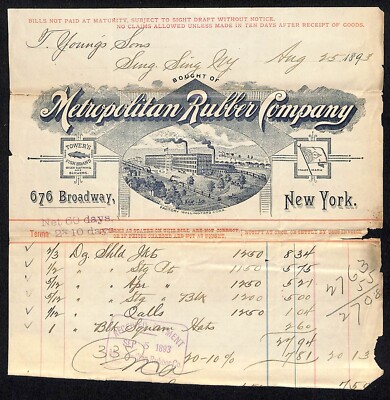 BILLS NOT PAID AT MATURITY, SUBJECT TO SIGHT DRAFT WITHOUT NOTICE.
NO CLAIMS ALLOWED UNLESS MADE IN TEN DAYS AFTER RECEIPT OF GOODS.
T. Young's Sons
Sing Sing NY Aug 25 1893
BOUGHT OF
Metropolitan Rubber Company
TOWER'S
FISH BRAND
TRADE MARK
676 Broadway, New York.
Net 60 days,
2% 10 days.
Terms
2/3 Dz Shld Jkts 1250 834
1/2 " Stg Pt 1150 575
1/2 " Apr 521
5/12 " Stg " Blk 1200 500
1/12 " Oalls 1250
1 " Blk Squam Hats 260
2794
20-10% 781 2013
2763
55
2708
SEP 5 1893